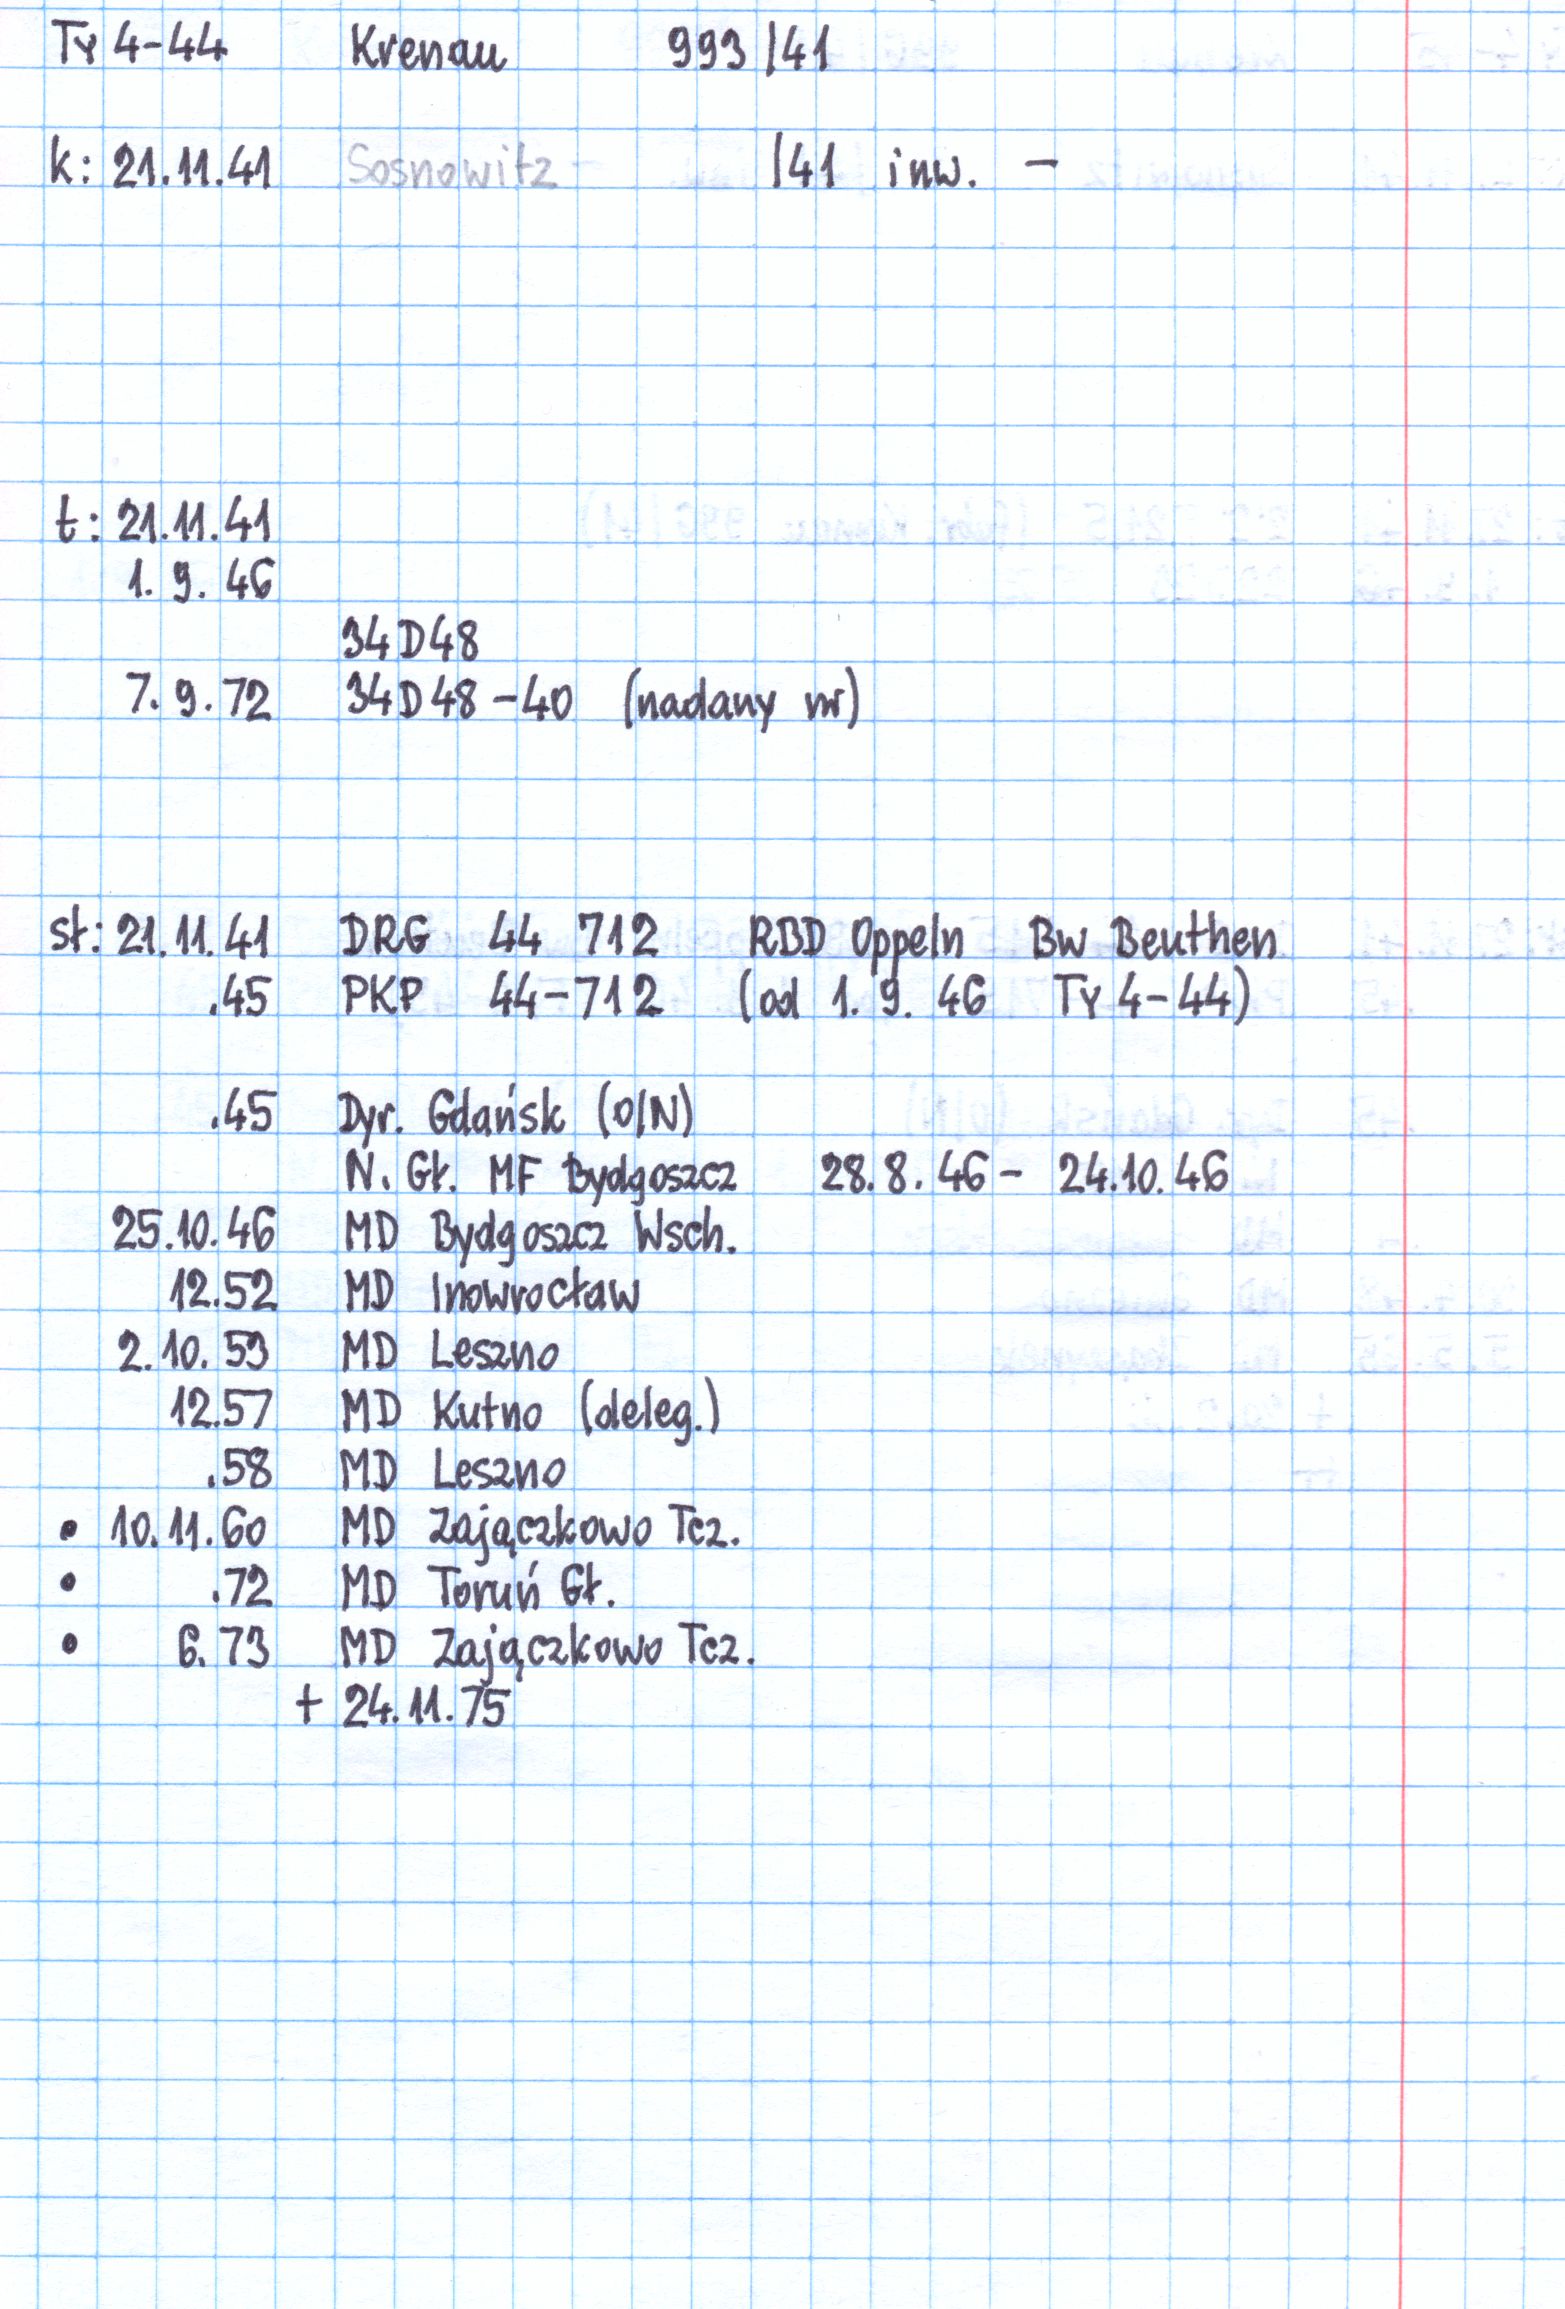 Ty 4-44 Krenau 993/41
k: 21.11.41 Sosnowitz - /41 inw. -
t: 21.11.41
1. 9. 46
34D48
7. 9. 72 34D48-40 (nadany nr)
st: 21.11.41 DRG 44 712 RBD Oppeln Bw Beuthen
.45 PKP 44-712 (od 1. 9. 46 Ty 4-44)
.45 Dyr. Gdańsk (O/N)
N. Gł. MF Bydgoszcz 28.8.46- 24.10.46
25.10.46 MD Bydgoszcz Wsch.
12.52 MD Inowrocław
2.10.53 MD Leszno
12.57 MD Kutno (deleg.)
.58 MD Leszno
• 10.11.60 MD Zajączkowo Tcz.
• .72 MD Toruń Gł.
• 6.73 MD Zajączkowo Tcz.
+ 24.11.75